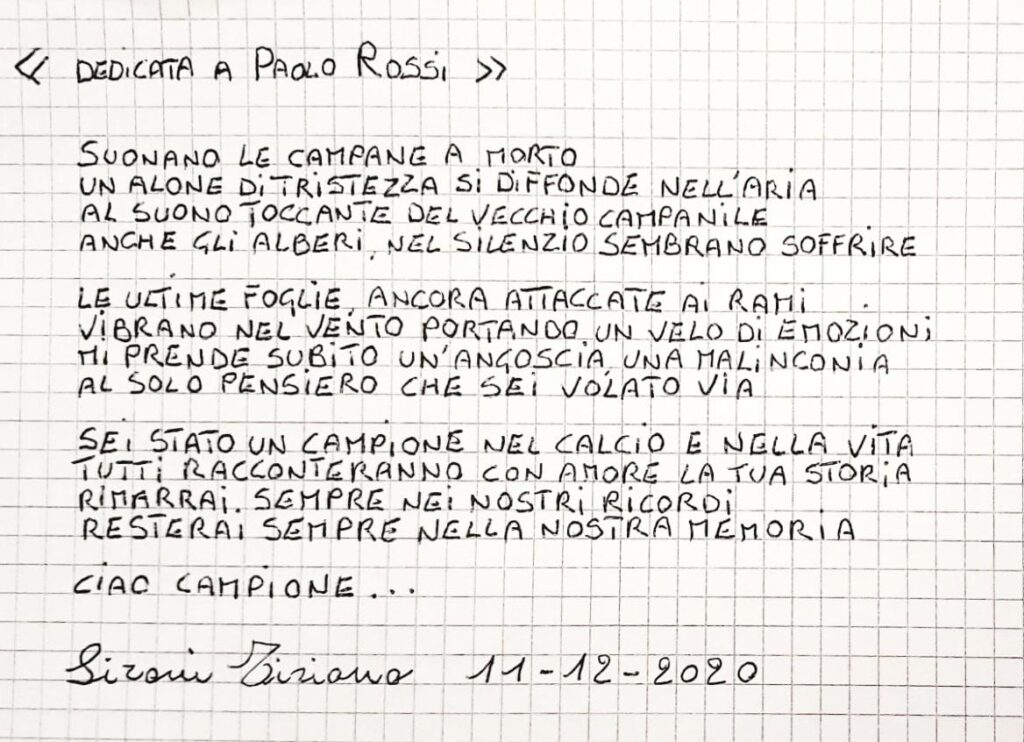 « DEDICATA A PAOLO ROSSI »
SUONANO LE CAMPANE A MORTO
UN ALONE DI TRISTEZZA SI DIFFONDE NELL'ARIA
AL SUONO TOCCANTE DEL VECCHIO CAMPANILE
ANCHE GLI ALBERI, NEL SILENZIO SEMBRANO SOFFRIRE
LE ULTIME FOGLIE, ANCORA ATTACCATE AI RAMI
VIBRANO NEL VENTO PORTANDO, UN VELO DI EMOZIONI
MI PRENDE SUBITO UN'ANGOSCIA, UNA MALINCONIA
AL SOLO PENSIERO CHE SEI VOLATO VIA
SEI STATO UN CAMPIONE NEL CALCIO E NELLA VITA
TUTTI RACCONTERANNO CON AMORE LA TUA STORIA
RIMARRAI. SEMPRE NEI NOSTRI RICORDI
RESTERAI SEMPRE NELLA NOSTRA MEMORIA
CIAO CAMPIONE...
Sironi Tiziano 11-12-2020